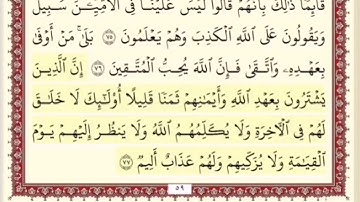 قَآئِمًا ذَٰلِكَ بِأَنَّهُمْ قَالُوا۟ لَيْسَ عَلَيْنَا فِى ٱلْأُمِّيِّـۧنَ سَبِيلٌ
وَيَقُولُونَ عَلَى ٱللَّهِ ٱلْكَذِبَ وَهُمْ يَعْلَمُونَ ٧٥ بَلَىٰ مَنْ أَوْفَىٰ
بِعَهْدِهِۦ وَٱتَّقَىٰ فَإِنَّ ٱللَّهَ يُحِبُّ ٱلْمُتَّقِينَ ٧٦ إِنَّ ٱلَّذِينَ
يَشْتَرُونَ بِعَهْدِ ٱللَّهِ وَأَيْمَـٰنِهِمْ ثَمَنًا قَلِيلًا أُو۟لَـٰٓئِكَ لَا خَلَـٰقَ
لَهُمْ فِى ٱلْـَٔاخِرَةِ وَلَا يُكَلِّمُهُمُ ٱللَّهُ وَلَا يَنظُرُ إِلَيْهِمْ يَوْمَ
ٱلْقِيَـٰمَةِ وَلَا يُزَكِّيهِمْ وَلَهُمْ عَذَابٌ أَلِيمٌ ٧٧
٥٩